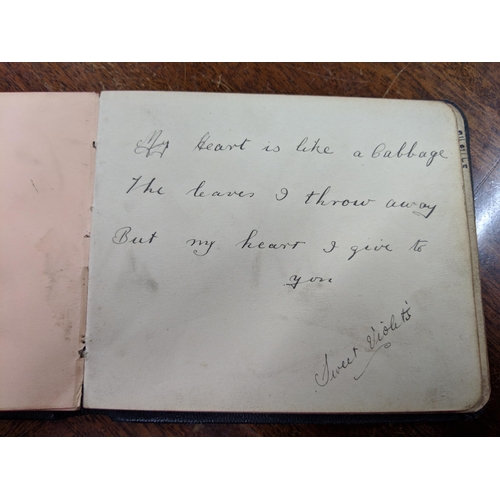 My heart is like a Cabbage
The leaves I throw away
But my heart I give to
you
Sweet Violets